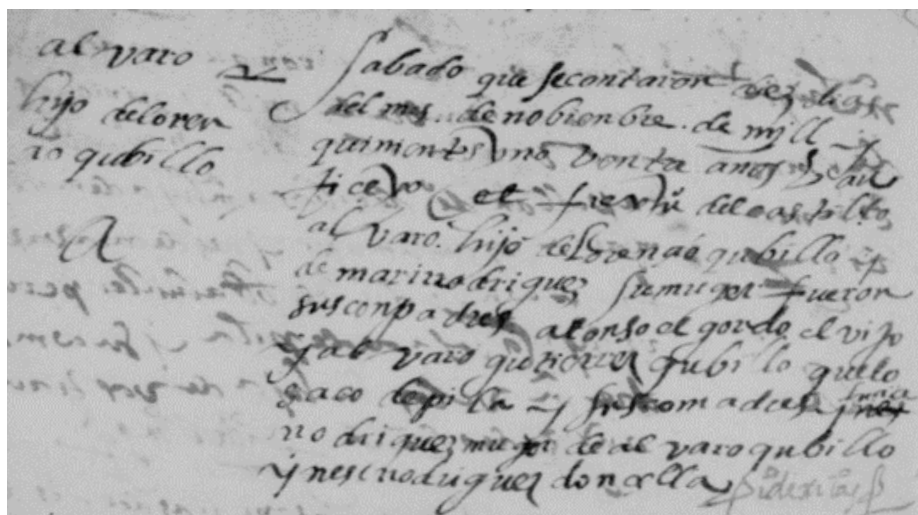 alvaro
hijo deloren
ço qubillo
Sabado que secontaron diez dias
del mes de nobienbre de mjll y
quinientos y nobenta años bau
tice yo el fre del castillo
alvaro hijo de lorenço qubillo y
de mari rodriguez su muger fueron
sus conpadres alonso el gordo el vijo
y alvaro gutierrez qubillo que lo
saco de pila y sus comadres
rodriguez muger de alvaro qubillo
ynes rodriguez donzella